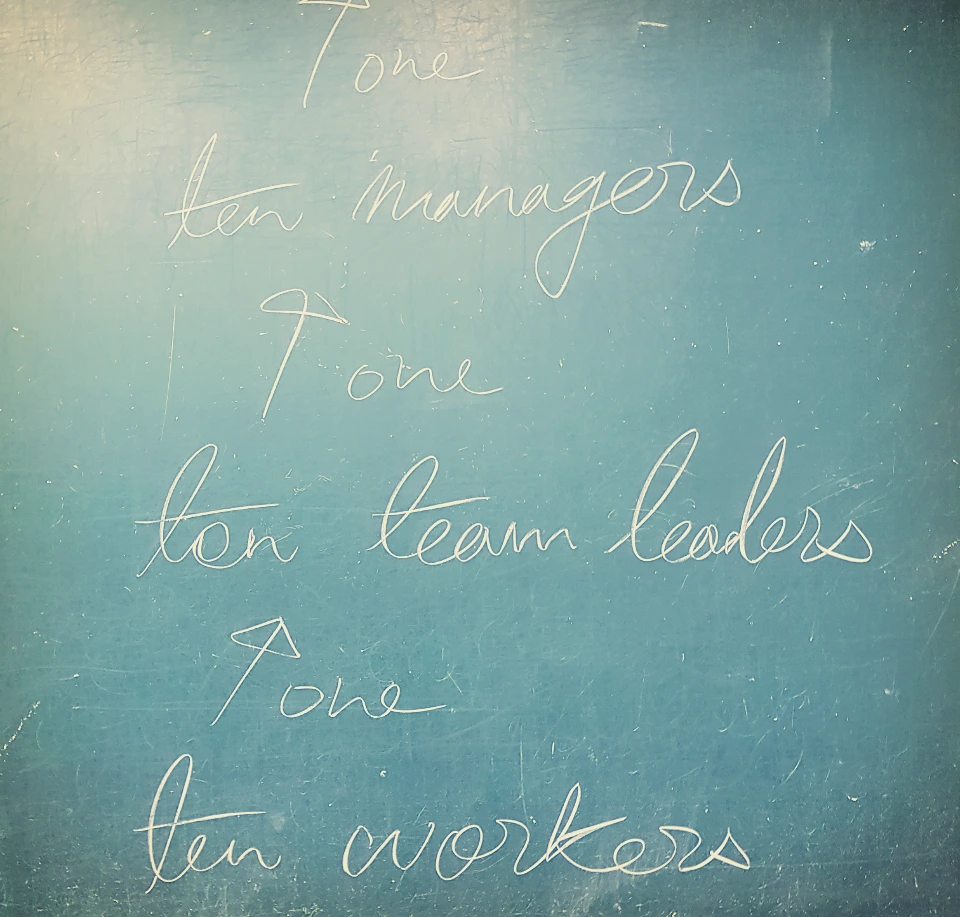 ↑ one
ten managers
↑ one
ten team leaders
↑ one
ten workers